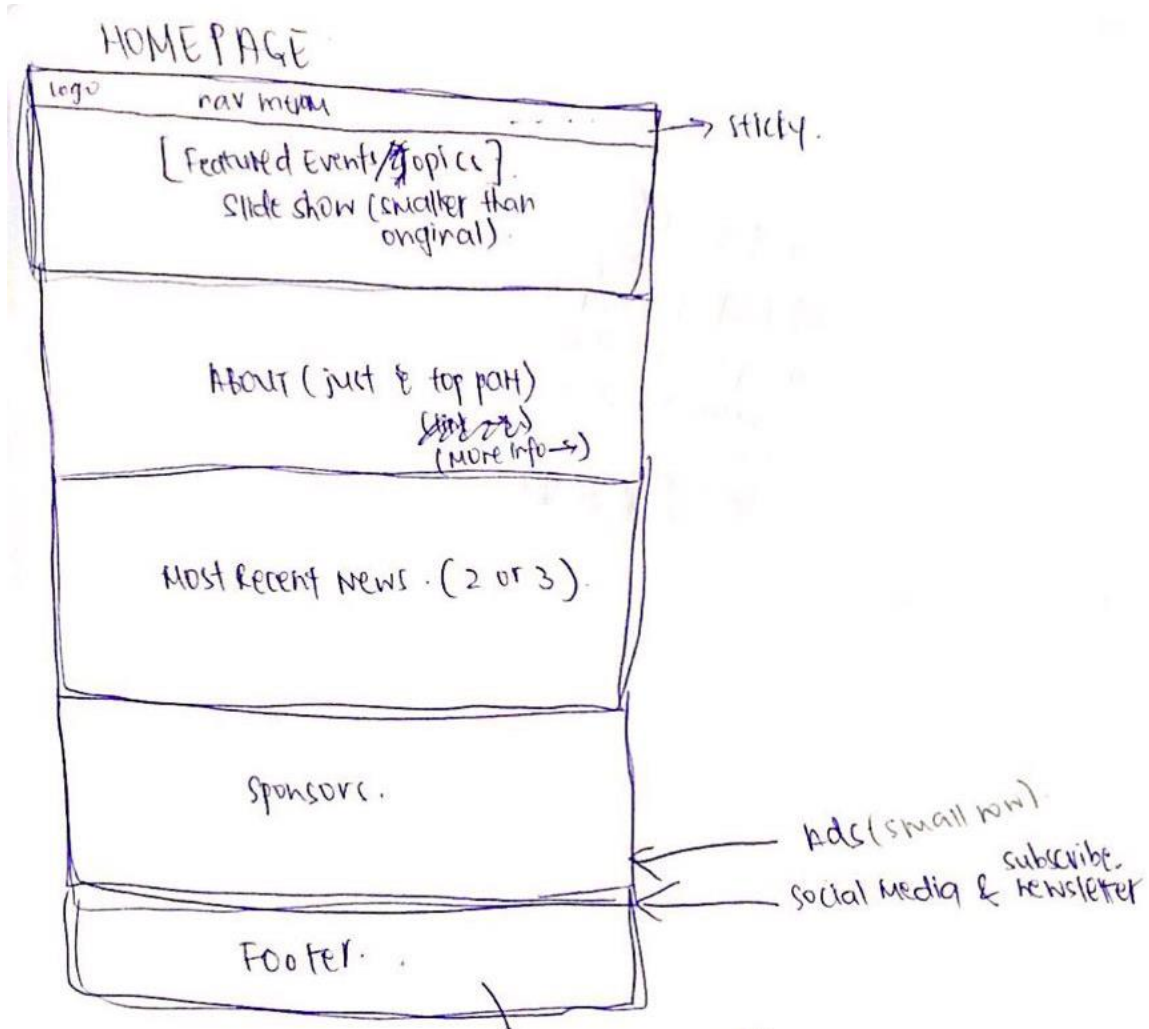 HOMEPAGE
logo nav menu . . . .
→ sticky.
[Featured Events/Topics]
Slide show (smaller than
original).
ABOUT (just & top part)
(More info→)
Most Recent News. (2 or 3).
Sponsors.
Ads (small row).
subscribe.
social Media & newsletter
Footer.